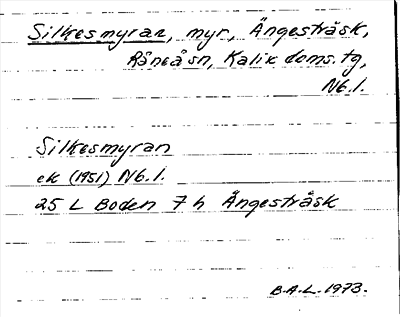 Silkesmyran, myr, Ängesträsk,
Råneå sn, Kalix doms. tg,
Nb. l.
Silkesmyran
ek (1951) Nb. l.
25 L Boden 7 h Ängesträsk
B.A.L. 1973.